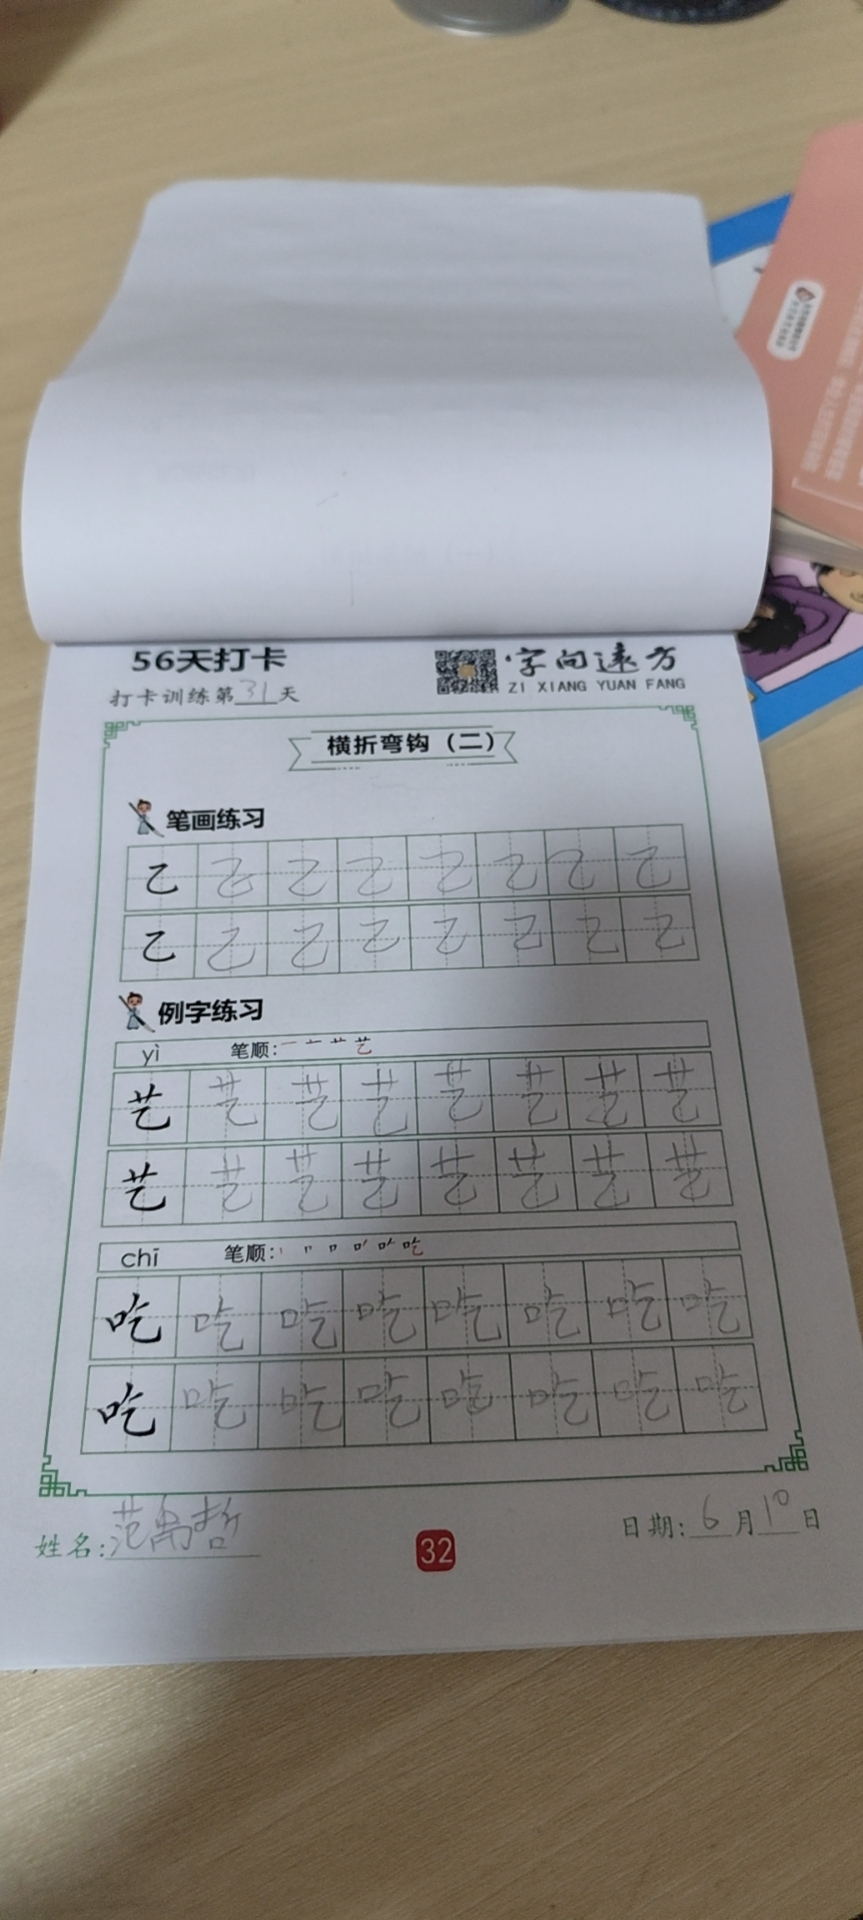 56天打卡
字向远方
ZI XIANG YUAN FANG
打卡训练第31天
横折弯钩（二）
笔画练习
乙 乙 乙 乙 乙 乙 乙 乙
乙 乙 乙 乙 乙 乙 乙 乙
例字练习
yì 笔顺：一 艹 艺
艺 艺 艺 艺 艺 艺 艺 艺
艺 艺 艺 艺 艺 艺 艺 艺
chī 笔顺：丨 口 吃
吃 吃 吃 吃 吃 吃 吃 吃
吃 吃 吃 吃 吃 吃 吃 吃
姓名：范禹哲
32
日期：6月10日